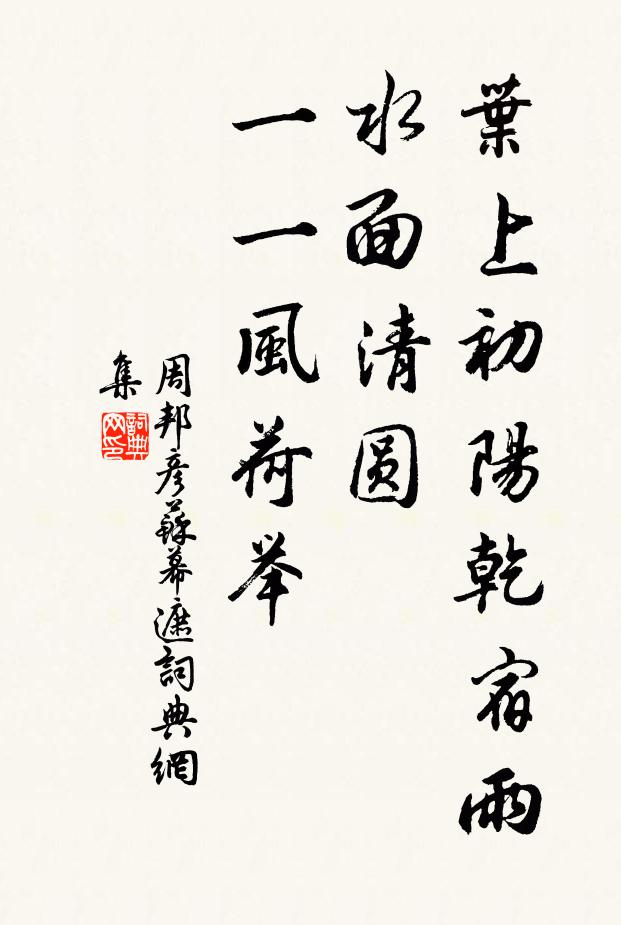 葉上初陽乾宿雨
水面清圓
一一風荷举
周邦彦蘇幕遮詞典網
集
詞典
网印